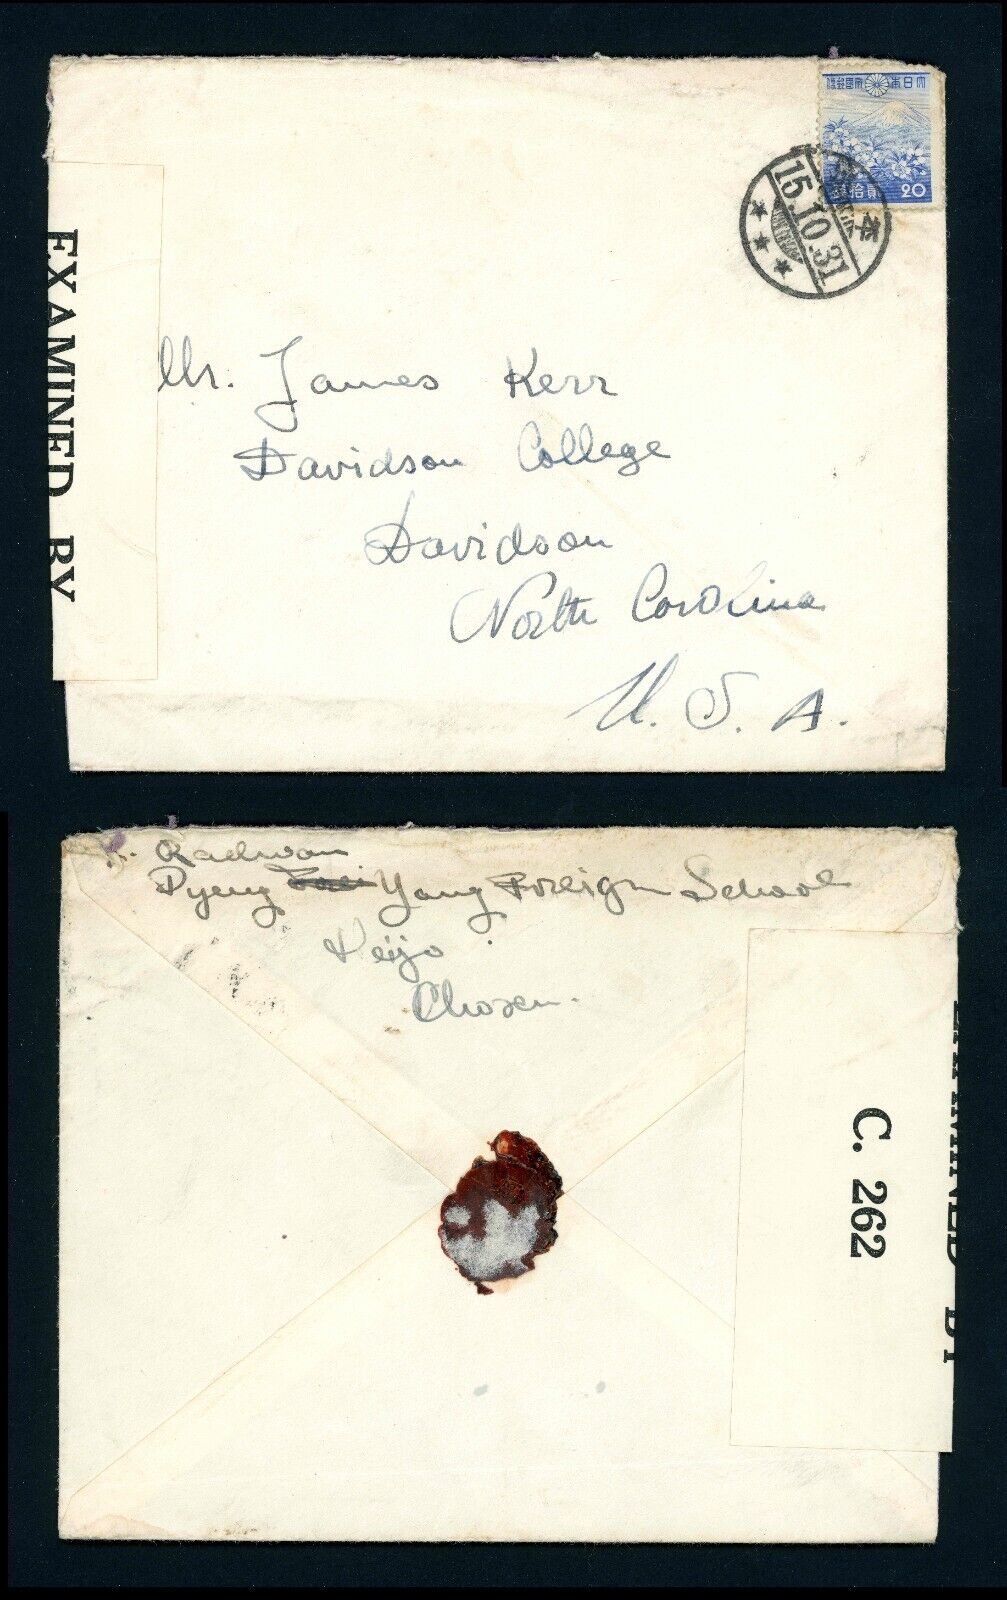 大日本帝國郵便
貳拾錢 20
15.10.31
EXAMINED BY
Mr. James Kerr
Davidson College
Davidson
North Carolina
U. S. A.
Radwan
Pyeng Yang Foreign School
Keijo
Chosen.
EXAMINED BY
C. 262